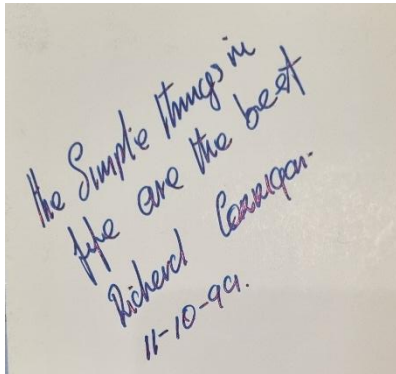 the Simple things in
life are the best
Richard Corrigan.
11-10-99.